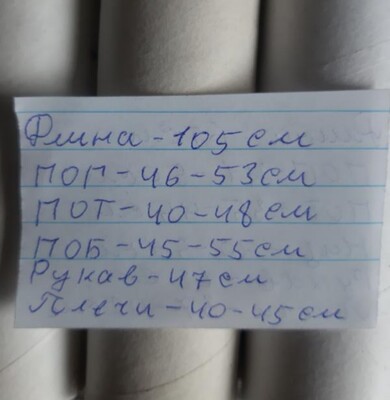 Длина - 105 см
ПОГ - 46 - 53 см
ПОТ - 40 - 48 см
ПОБ - 45 - 55 см
Рукав - 47 см
Плечи - 40 - 45 см